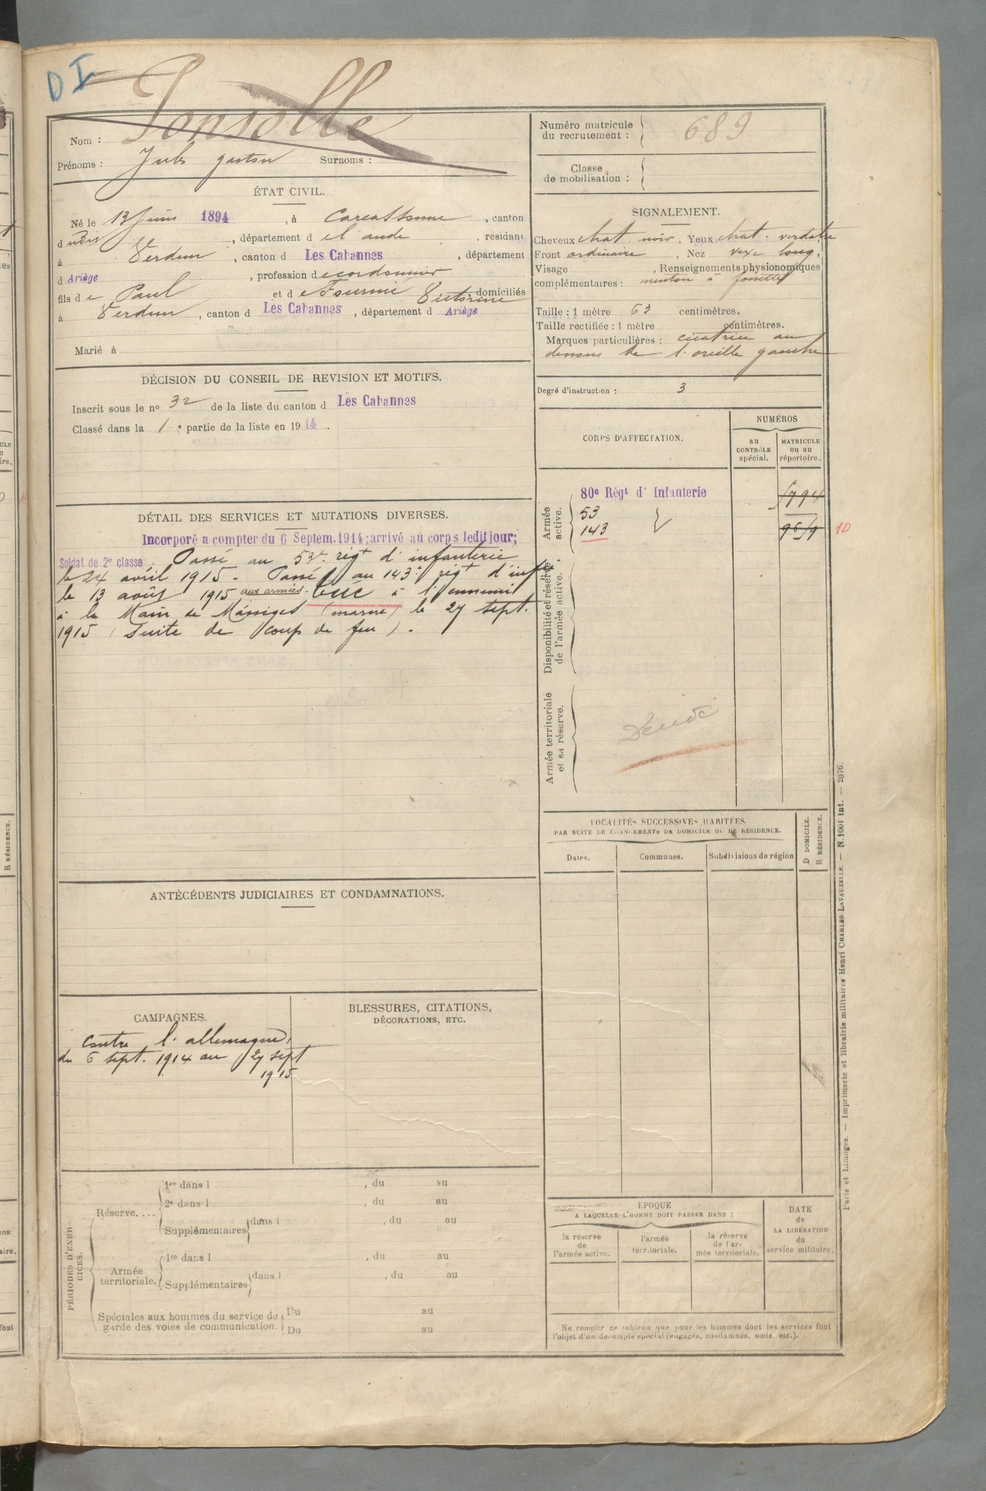 D I
Ponsolle
Nom :
Prénoms : Jules gaston Surnoms :
Numéro matricule du recrutement : 689
Classe de mobilisation :
ÉTAT CIVIL.
Né le 13 juin 1894, à Carcassonne, canton
d udis, département d el aude, résidant
à Verdun, canton d Les Cabannes, département
d Ariège, profession de cordonnier
fils de Paul et de Fournié Victorine domiciliés
à Verdun, canton d Les Cabannes, département d Ariège
Marié à
SIGNALEMENT.
Cheveux chat. noir. Yeux chat. verdatre
Front ordinaire, Nez vexe long,
Visage , Renseignements physionomiques
complémentaires : menton à fossette
Taille : 1 mètre 63 centimètres.
Taille rectifiée : 1 mètre centimètres.
Marques particulières : cicatrice au
dessous de l'oreille gauche
Degré d'instruction : 3
DÉCISION DU CONSEIL DE REVISION ET MOTIFS.
Inscrit sous le nº 32 de la liste du canton d Les Cabannes
Classé dans la 1e partie de la liste en 1914.
DÉTAIL DES SERVICES ET MUTATIONS DIVERSES.
Incorporé a compter du 6 Septem. 1914; arrivé au corps ledit jour;
Soldat de 2e classe. Passé au 53e régt d'infanterie
le 24 avril 1915 - Passé au 143e régt d'inf
le 13 août 1915 aux armées. Tué à l'ennemi
à la Main de Massiges (marne) le 27 sept.
1915 (Suite de coup de feu).
CORPS D'AFFECTATION.
NUMÉROS
AU CONTRÔLE spécial.
MATRICULE OU AU répertoire.
Armée active.
80e Régt d' Infanterie
53
143
10
Disponibilité et réserve de l'armée active.
Armée territoriale et sa réserve.
Décédé
LOCALITÉS SUCCESSIVES HABITÉES
PAR SUITE DE CHANGEMENTS DE DOMICILE OU DE RESIDENCE.
Dates.
Communes.
Subdivisions de région
D DOMICILE.
R RÉSIDENCE.
ANTÉCÉDENTS JUDICIAIRES ET CONDAMNATIONS.
CAMPAGNES.
Contre l'allemagne,
du 6 sept. 1914 au 27 sept
1915
BLESSURES, CITATIONS,
DÉCORATIONS, ETC.
PÉRIODES D'EXERCICES.
Réserve....
1re dans l , du au
2e dans l , du au
Supplémentaires dans l , du au
Armée territoriale.
1re dans l , du au
Supplémentaires dans l , du au
Spéciales aux hommes du service de garde des voies de communication.
Du au
Du au
EPOQUE
A LAQUELLE L'HOMME DOIT PASSER DANS :
la réserve de l'armée active.
l'armée territoriale.
la réserve de l'armée territoriale.
DATE de LA LIBÉRATION du service militaire.
Ne remplir ce tableau que pour les hommes dont les services font
l'objet d'un décompte spécial (engagés, condamnés, omis, etc.).
Paris et Limoges. — Imprimerie et librairie militaires Henri CHARLES-LAVAUZELLE. — N. 1007 int. — 2076.